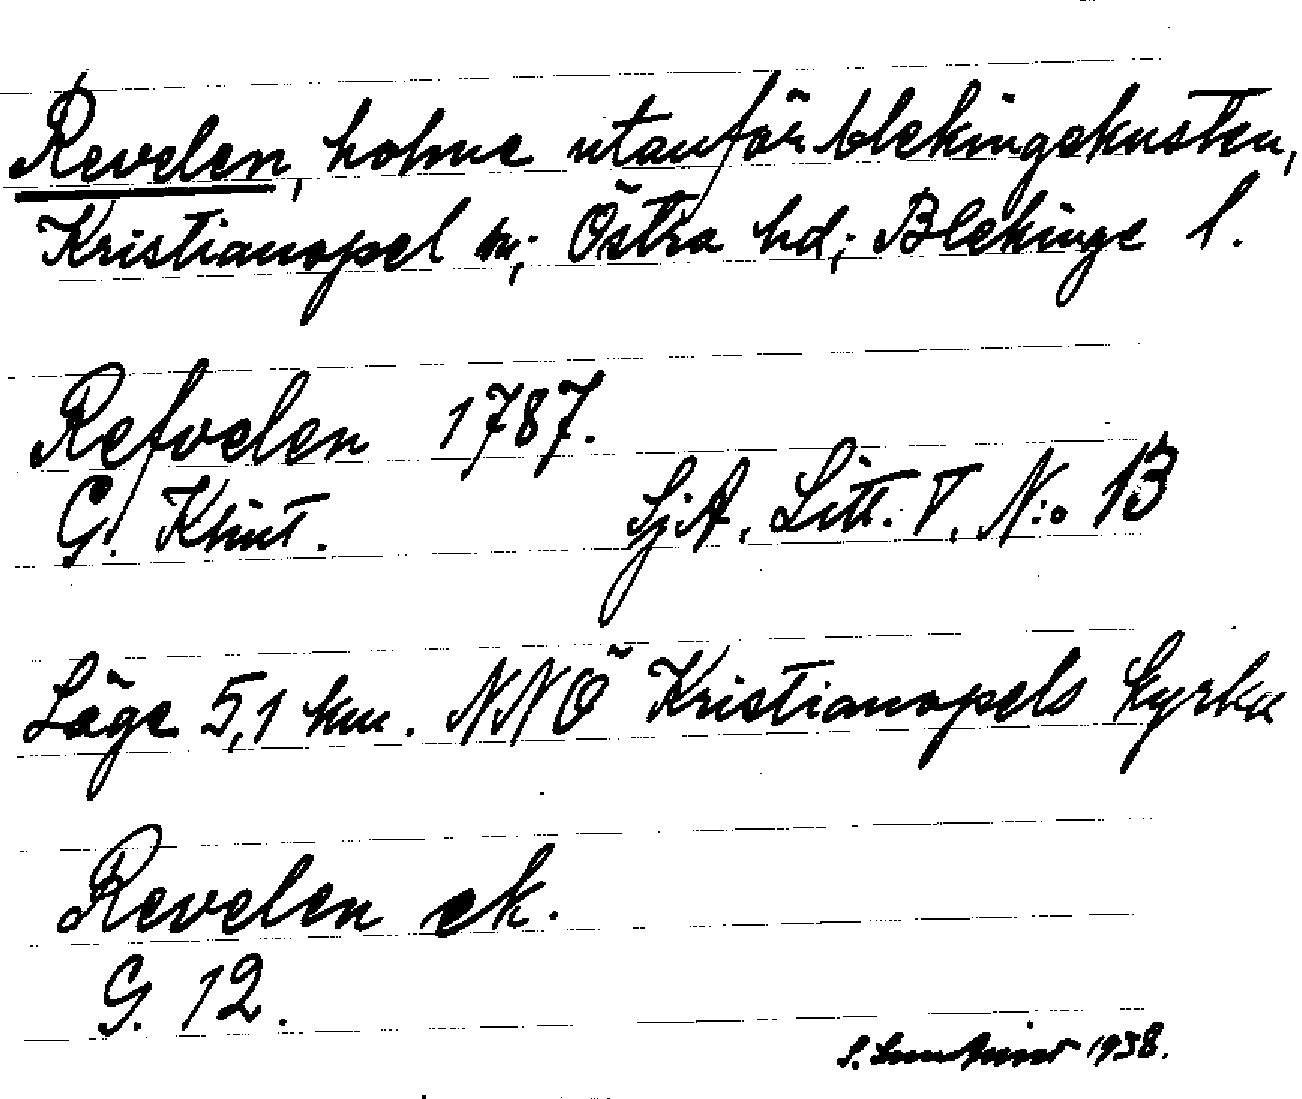 Revelen, holme utanför blekingekusten,
Kristianopel sn; Östra hd; Blekinge l.
Refvelen 1787.
G. Klint. SjA, Litt. V, N:o 13
Läge 5,1 km. NNÖ Kristianopels kyrka
Revelen ek.
G. 12.
S. 1938.